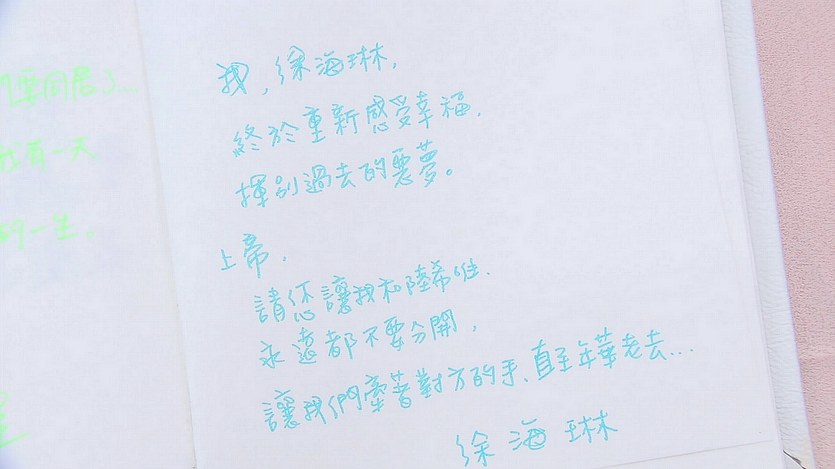 們要同居了...
我有一天
的一生。
我,徐海琳,
終於重新感受幸福,
揮別過去的惡夢。
上帝,
請您讓我和陸希唯,
永遠都不要分開,
讓我們牽著對方的手、直至年華老去...
徐海琳